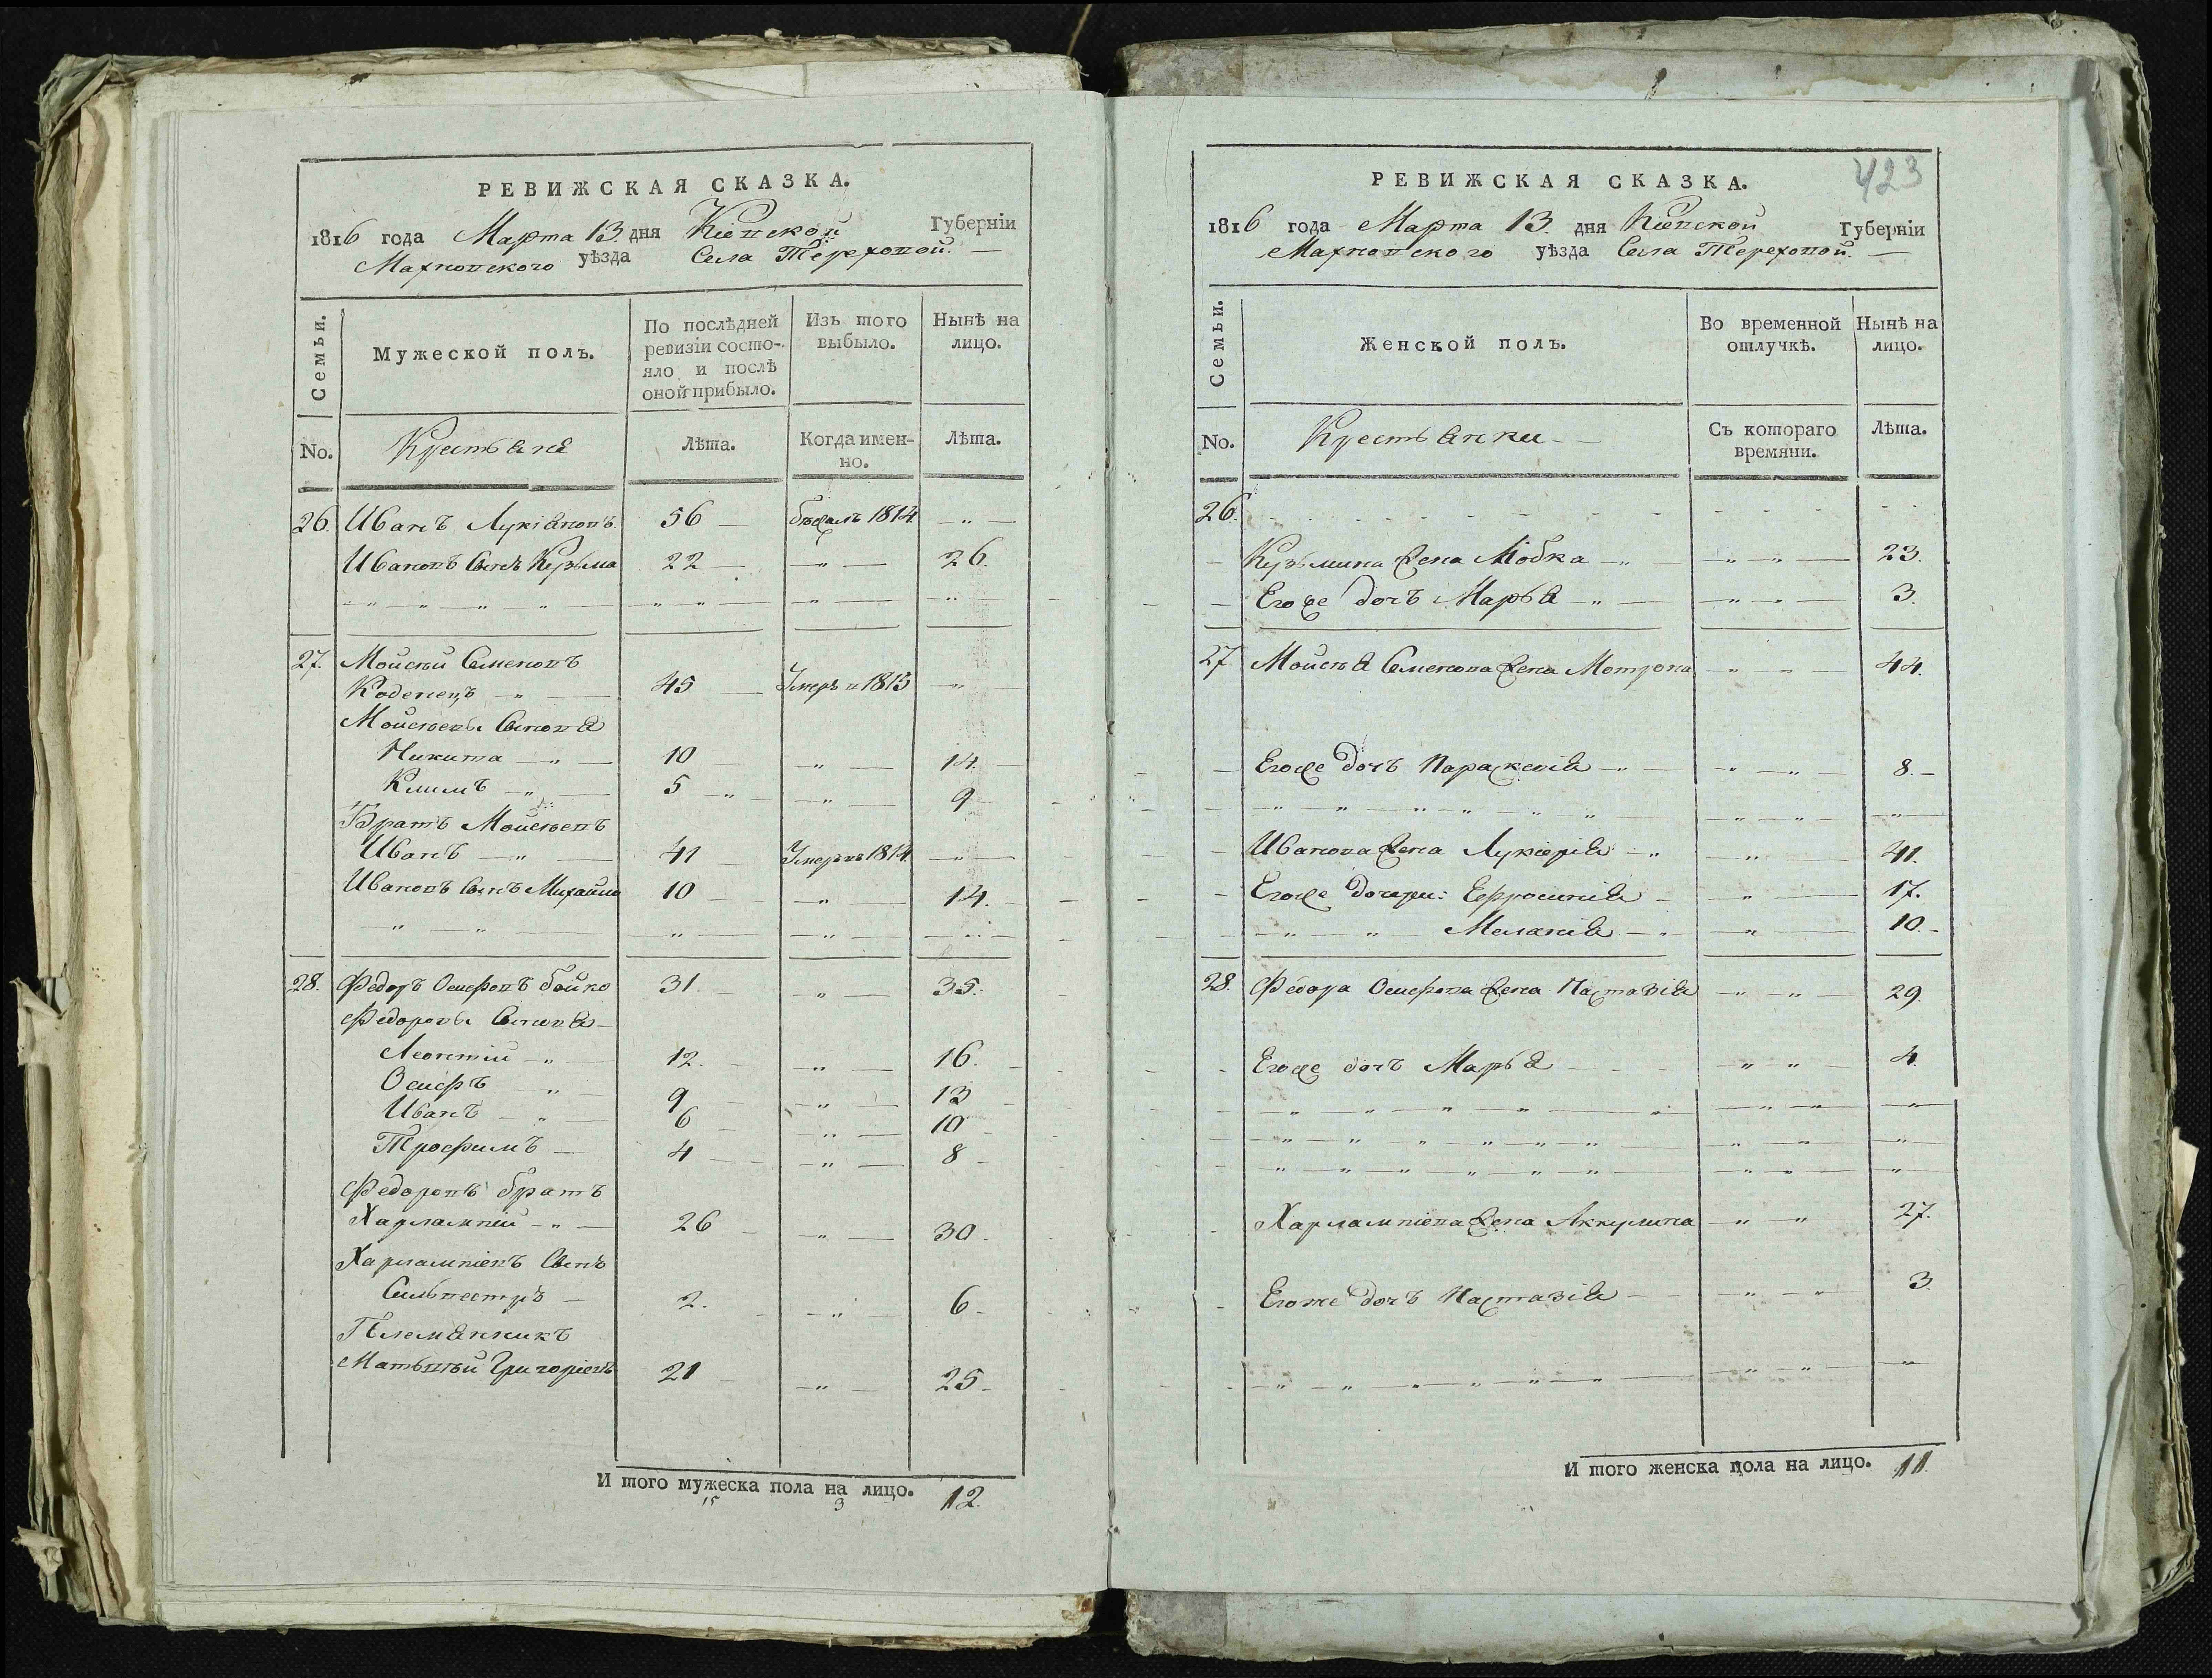 РЕВИЖСКАЯ СКАЗКА.
1816 года Марта 13. дня Кіевской Губерніи
Махновского уѣзда Села Тереховой.
Семьи.
Мужеской полъ.
По послѣдней ревизіи состо-
яло и послѣ
оной прибыло.
Изъ того
выбыло.
Нынѣ на
лицо.
No.
Крестьяне
Лѣта.
Когда имен-
но.
Лѣта.
26. Иванъ Лукіановъ. 56 бѣжалъ 1814
Ивановъ Сынъ Кузьма 22 26.
27. Мойсѣй Семеновъ
Коденецъ 45 Умеръ в 1815
Мойсѣевы Сыновя
Никита 10 14.
Климъ 5 9
Братъ Мойсѣевъ
Иванъ 41 Умеръ въ 1814.
Ивановъ Сынъ Михайло 10 14.
28. Федоръ Осифовъ бойко 31 35.
Федоровы Сыновя
Леонтій 12. 16.
Осифъ 9 13
Иванъ 6 10
Трофимъ 4 8
Федоровъ братъ
Харлампій 26 30.
Харлампіевъ Сынъ
Сильвестръ 2. 6
Племянникъ
Матьвѣй Григоріевъ 21 25
И того мужеска пола на лицо. 12.
15 3
423
РЕВИЖСКАЯ СКАЗКА.
1816 года Марта 13. дня Кіевской Губерніи
Махновского уѣзда Села Тереховой.
Семьи.
Женской полъ.
Во временной
отлучкѣ.
Нынѣ на
лицо.
No.
Крестьянки
Съ котораго
времяни.
Лѣта.
26.
Кузьмина жена Любка 23.
Егоже дочъ Марья 3.
27 Мойсѣя Семенова жена Мотрона 44.
Егоже дочъ Параскевія 8.
Иванова жена Лукерія 41.
Егоже дочери: Ефросинія 17.
Меланія 10.
28. Федора Осифова жена Настазія 29.
Егоже дочъ Марья 4.
Харлампіева жена Аккулина 27.
Егоже дочъ Настазія 3.
И того женска пола на лицо. 11.